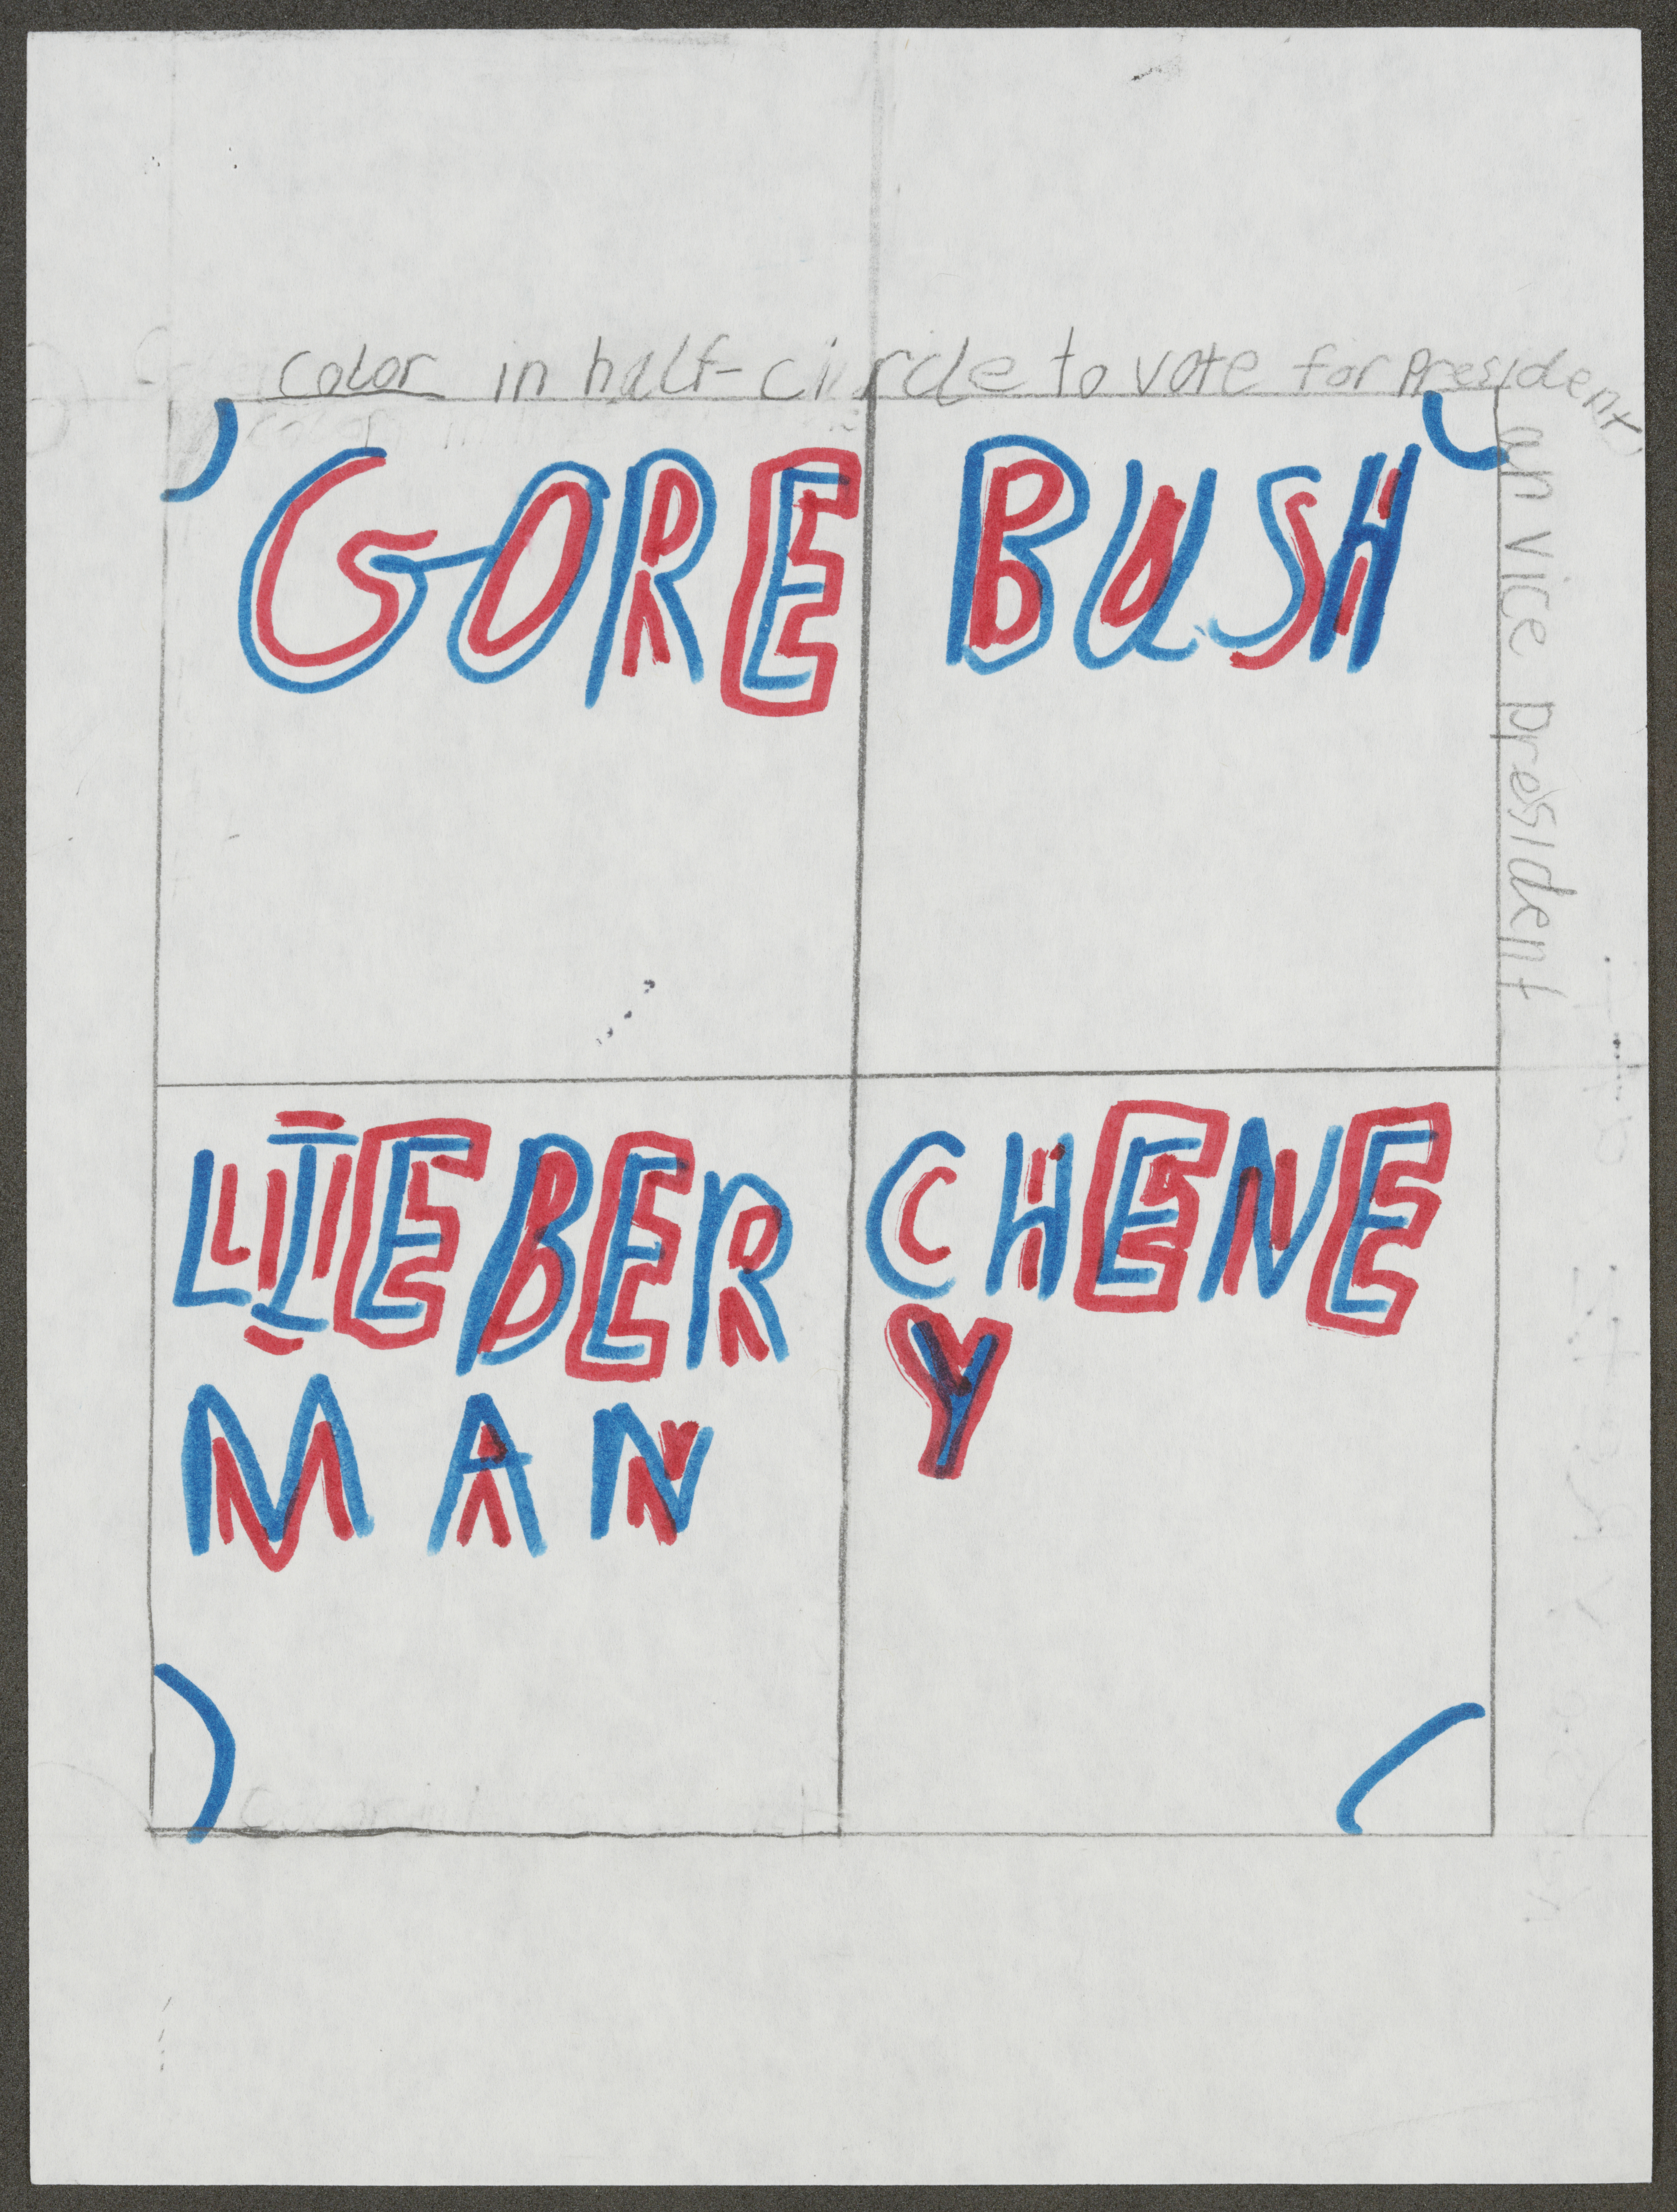 color in half-circle to vote for President
an vice president
GORE
BUSH
LIEBER
MAN
CHENE
Y